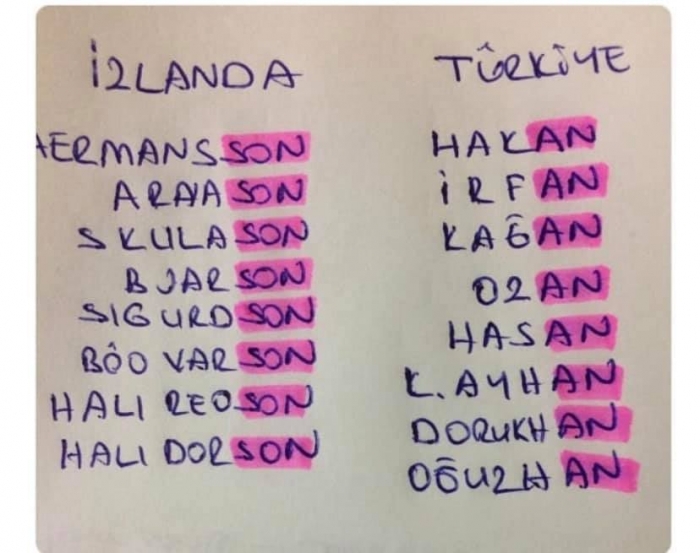 İZLANDA
HERMANSSON
ARNASON
SKULASON
BJARSON
SIGURDSON
BÔOVARSON
HALIREOSON
HALIDORSON
TÜRKİYE
HAKAN
İRFAN
KAĞAN
OZAN
HASAN
K.AYHAN
DORUKHAN
OĞUZHAN